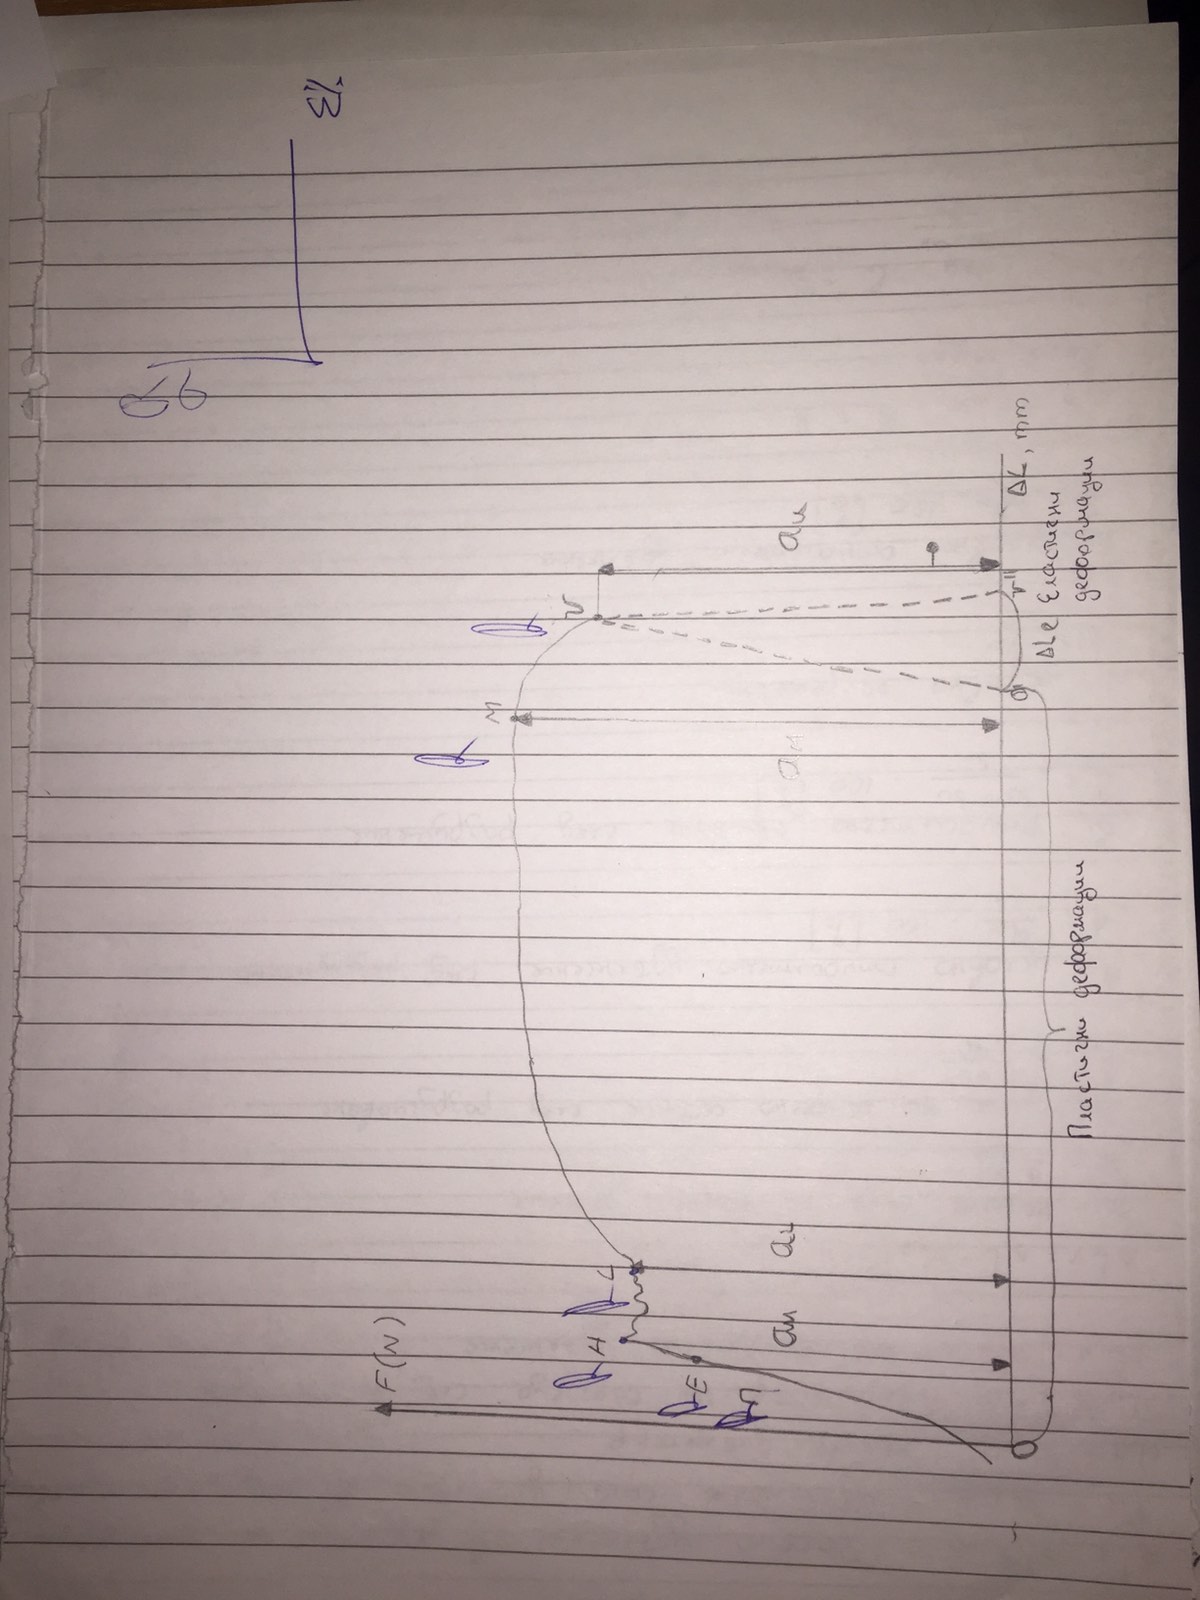 F(N)
R
M
R
U
R H
R L
R E
R
aн
aL
aм
au
O
O'
U"
ΔL, mm
ΔLe Еластични
деформации
Пластични деформации
R
σ
ε%